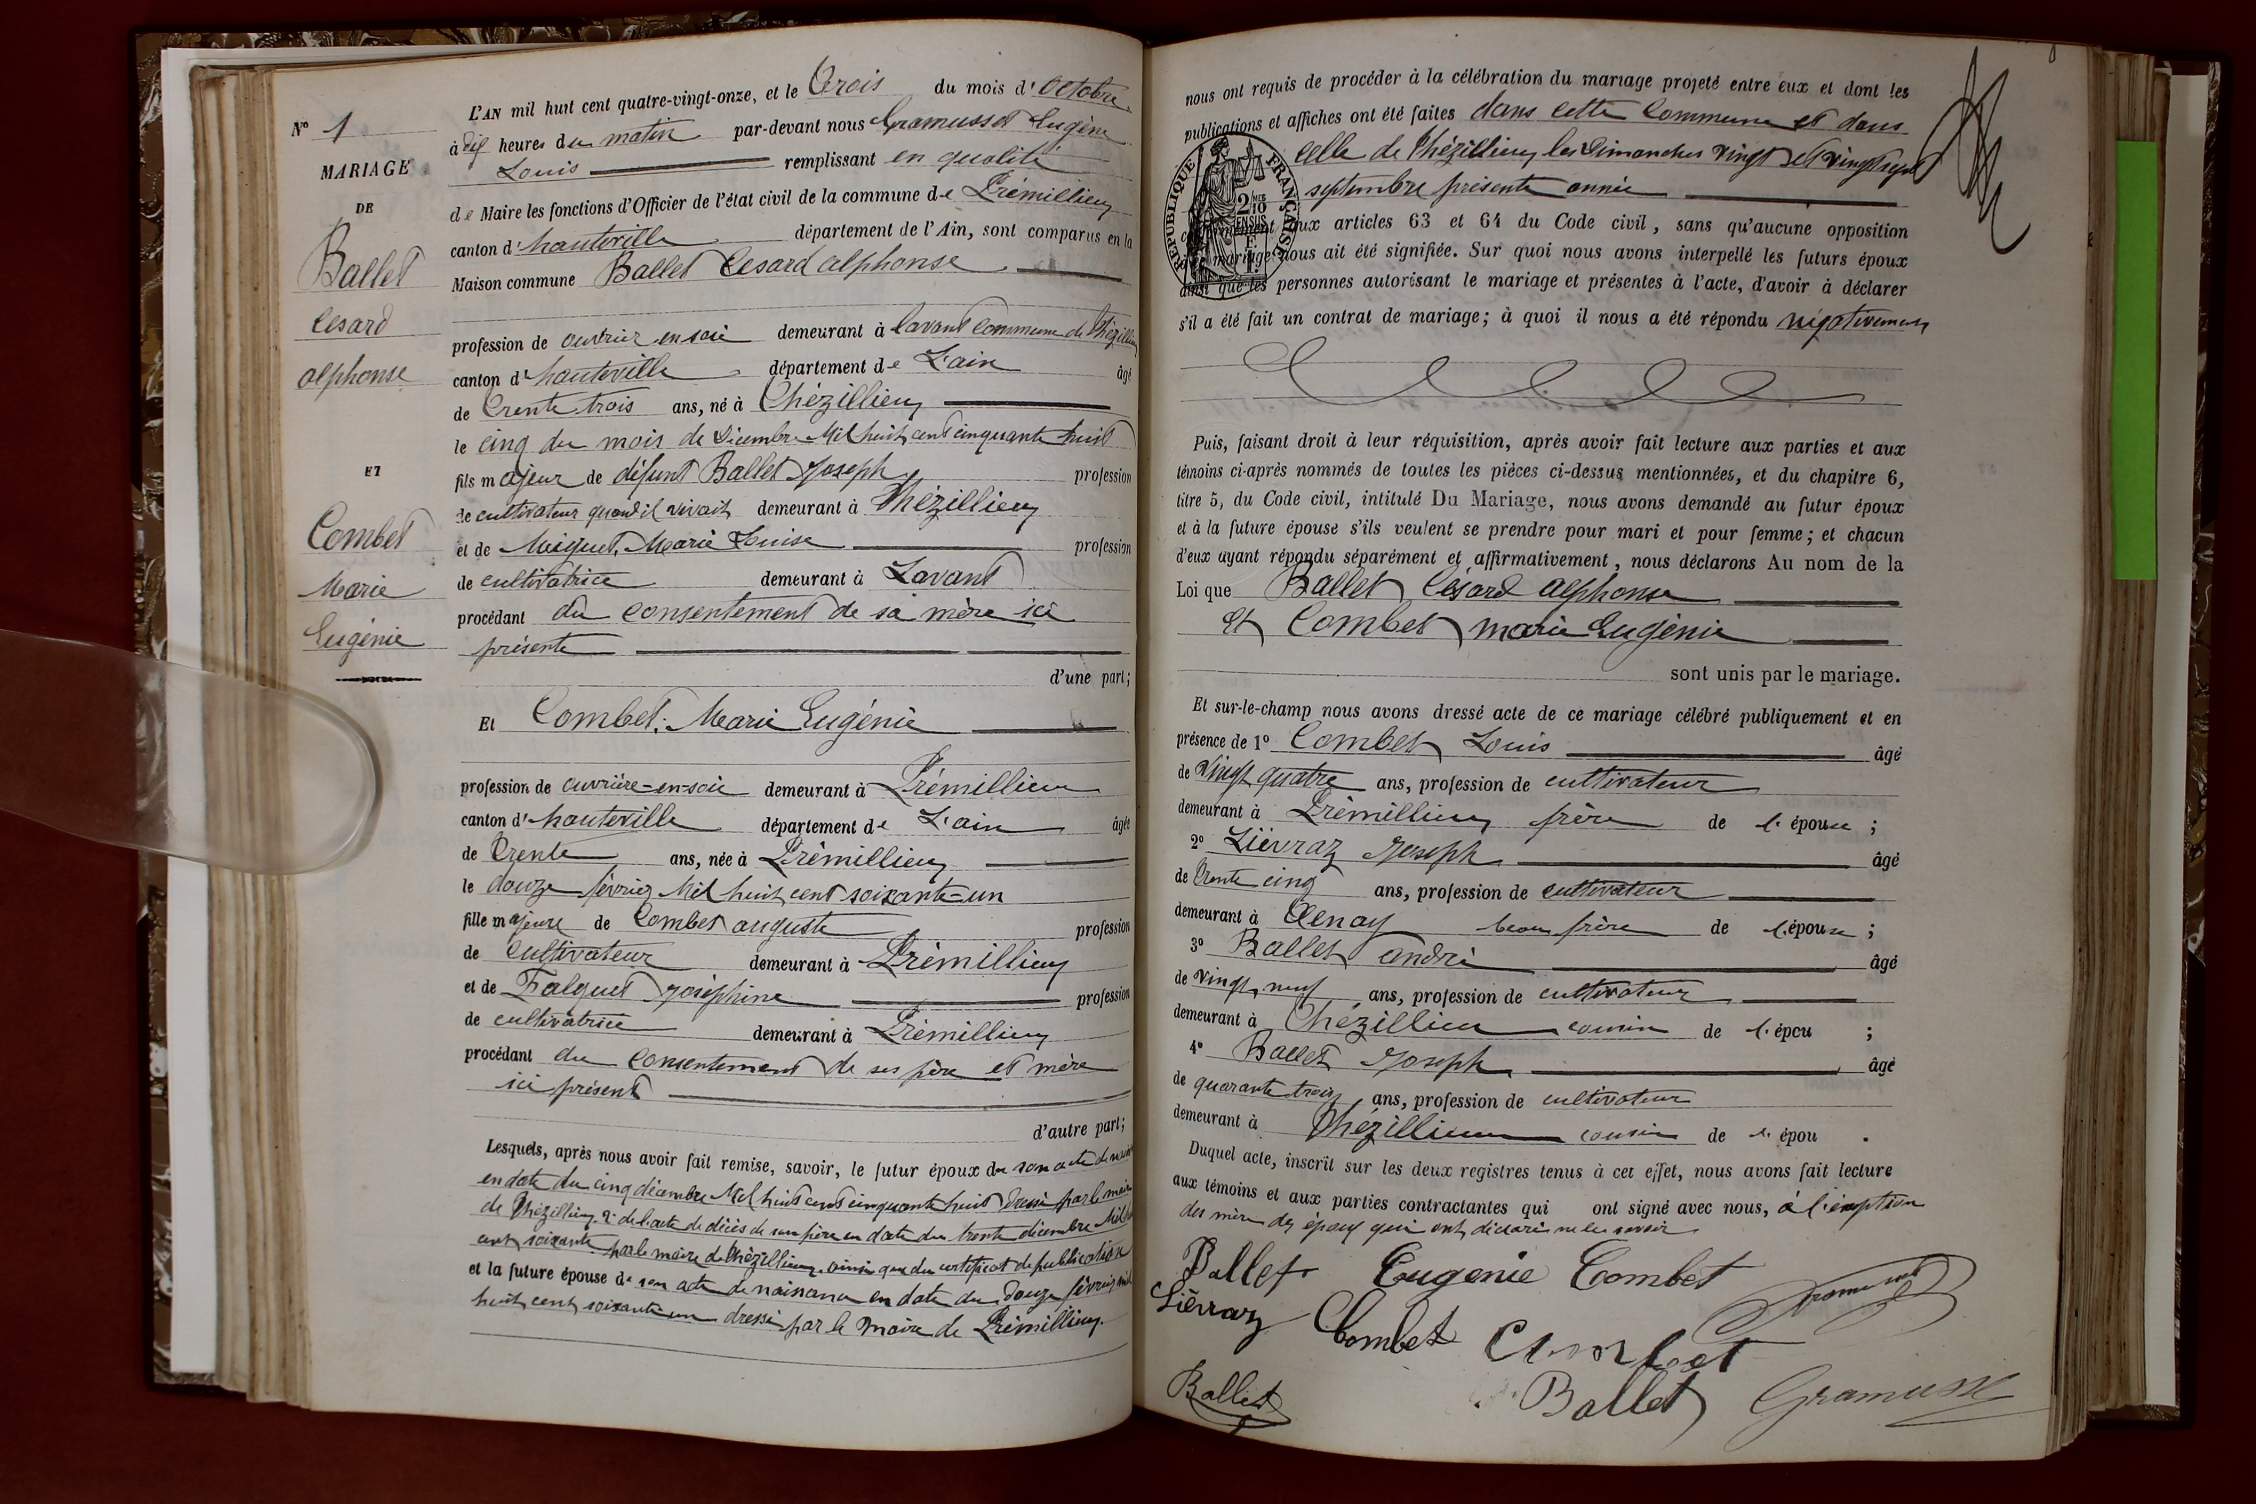 N° 1
MARIAGE
DE
Ballet
Cesard
alphonse
ET
Combet
Marie
Eugénie
L'AN mil huit cent quatre-vingt-onze, et le Trois du mois d'octobre
à dix heures du matin par-devant nous Gramusset Eugène
Louis remplissant en qualité
de Maire les fonctions d'Officier de l'état civil de la commune de Prémillieu
canton d'hauteville département de l'Ain, sont comparus en la
Maison commune Ballet Cesard alphonse
profession de ouvrier en soie demeurant à Lavant Commune de Thézillieu
canton d'hauteville département de L'ain âgé
de Trente trois ans, né à Thézillieu
le cinq du mois de Décembre Mil huit cent cinquante huit
fils majeur de défunt Ballet Joseph profession
de cultivateur quand il vivait demeurant à Thézillieu
et de Miguet, Marie Louise profession
de cultivatrice demeurant à Lavant
procédant du consentement de sa mère ici
présente
d'une part;
Et Combet, Marie Eugénie
profession de ouvrière-en-soie demeurant à Prémillieu
canton d'hauteville département de L'ain âgée
de Trente ans, née à Prémillieu
le douze février Mil huit cent soixante-un
fille majeure de Combet auguste profession
de cultivateur demeurant à Prémillieu
et de Falquet Joséphine profession
de cultivatrice demeurant à Prémillieu
procédant du consentement de ses père et mère
ici présent
d'autre part;
Lesquels, après nous avoir fait remise, savoir, le futur époux de son acte de
en date du cinq décembre Mil huit cent cinquante huit dressé par le maire
de Thézillieu, 2° de l'acte de décès de son père en date du trente décembre Mil
cent soixante par le maire de Thézillieu ainsi que du certificat de publication
et la future épouse de son acte de naissance en date du douze février mil
huit cent soixante un dressé par le maire de Prémillieu.
nous ont requis de procéder à la célébration du mariage projeté entre eux et dont les
publications et affiches ont été faites dans cette Commune et dans
celle de Thézillieu les Dimanches vingt et vingt sept
septembre présente année
RÉPUBLIQUE FRANÇAISE
2 10
EN SUS
conformément aux articles 63 et 64 du Code civil, sans qu'aucune opposition
mariage nous ait été signifiée. Sur quoi nous avons interpellé les futurs époux
ainsi que les personnes autorisant le mariage et présentes à l'acte, d'avoir à déclarer
s'il a été fait un contrat de mariage; à quoi il nous a été répondu négativement
Puis, faisant droit à leur réquisition, après avoir fait lecture aux parties et aux
témoins ci-après nommés de toutes les pièces ci-dessus mentionnées, et du chapitre 6,
titre 5, du Code civil, intitulé Du Mariage, nous avons demandé au futur époux
et à la future épouse s'ils veulent se prendre pour mari et pour femme; et chacun
d'eux ayant répondu séparément et affirmativement, nous déclarons Au nom de la
Loi que Ballet Césard alphonse
et Combet marie Eugénie
sont unis par le mariage.
Et sur-le-champ nous avons dressé acte de ce mariage célébré publiquement et en
présence de 1° Combet Louis âgé
de vingt quatre ans, profession de cultivateur
demeurant à Prémillieu frère de l'épouse;
2° Lièvraz Joseph âgé
de Trente cinq ans, profession de cultivateur
demeurant à Tenay beau frère de l'épouse;
3° Ballet andré âgé
de vingt neuf ans, profession de cultivateur
demeurant à Thézillieu cousin de l'épou ;
4° Ballet Joseph âgé
de quarante trois ans, profession de cultivateur
demeurant à Thézillieu cousin de l'épou .
Duquel acte, inscrit sur les deux registres tenus à cet effet, nous avons fait lecture
aux témoins et aux parties contractantes qui ont signé avec nous, à l'exeption
des mère des époux qui ont déclaré ne le savoir
Ballet Eugenie Combet
Lièvraz Combet Combet
Ballet Ballet Gramusse